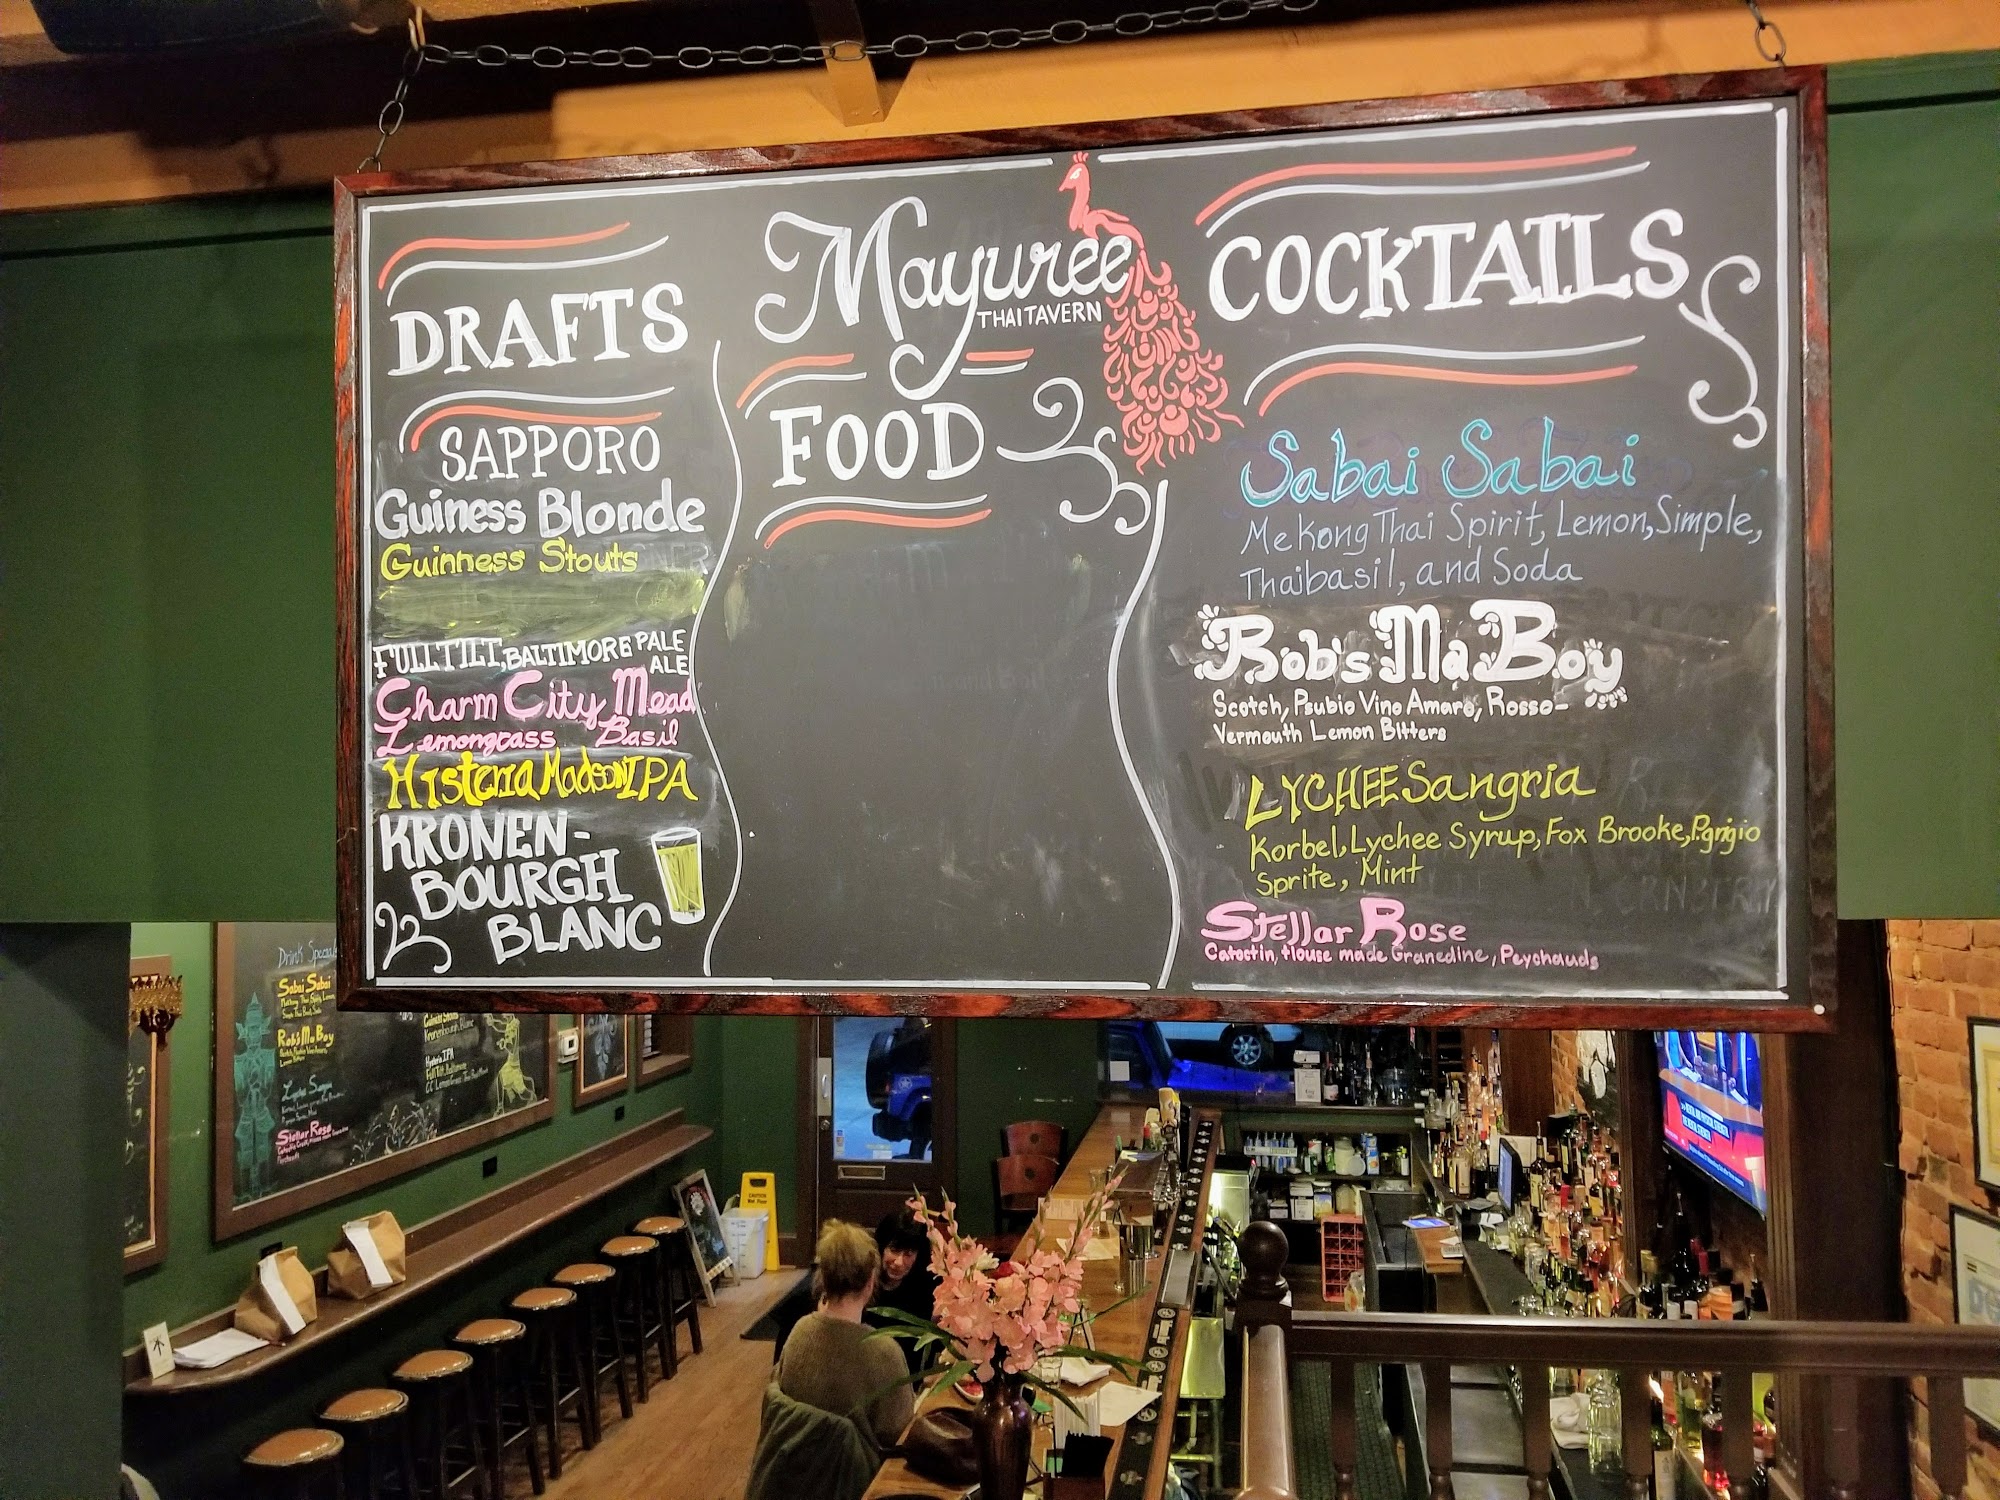 DRAFTS
SAPPORO
Guiness Blonde
Guinness Stouts
FULLTILT, BALTIMORE PALE
ALE
Charm City Mead
Lemongrass Basil
Histeria Madson IPA
KRONEN-
BOURGH
BLANC
Mayuree
THAI TAVERN
FOOD
COCKTAILS
Sabai Sabai
Mekong Thai Spirit, Lemon, Simple,
Thaibasil, and Soda
Rob's Ma Boy
Scotch, Psubio Vino Amaro, Rosso-
Vermouth Lemon Bitters
LYCHEE Sangria
Korbel, Lychee Syrup, Fox Brooke, P.grigio
Sprite, Mint
Stellar Rose
Catoctin, House made Granedine, Peychauds
Drink Specials
Sabai Sabai
Rob's Ma Boy
Stellar Rose
CAUTION